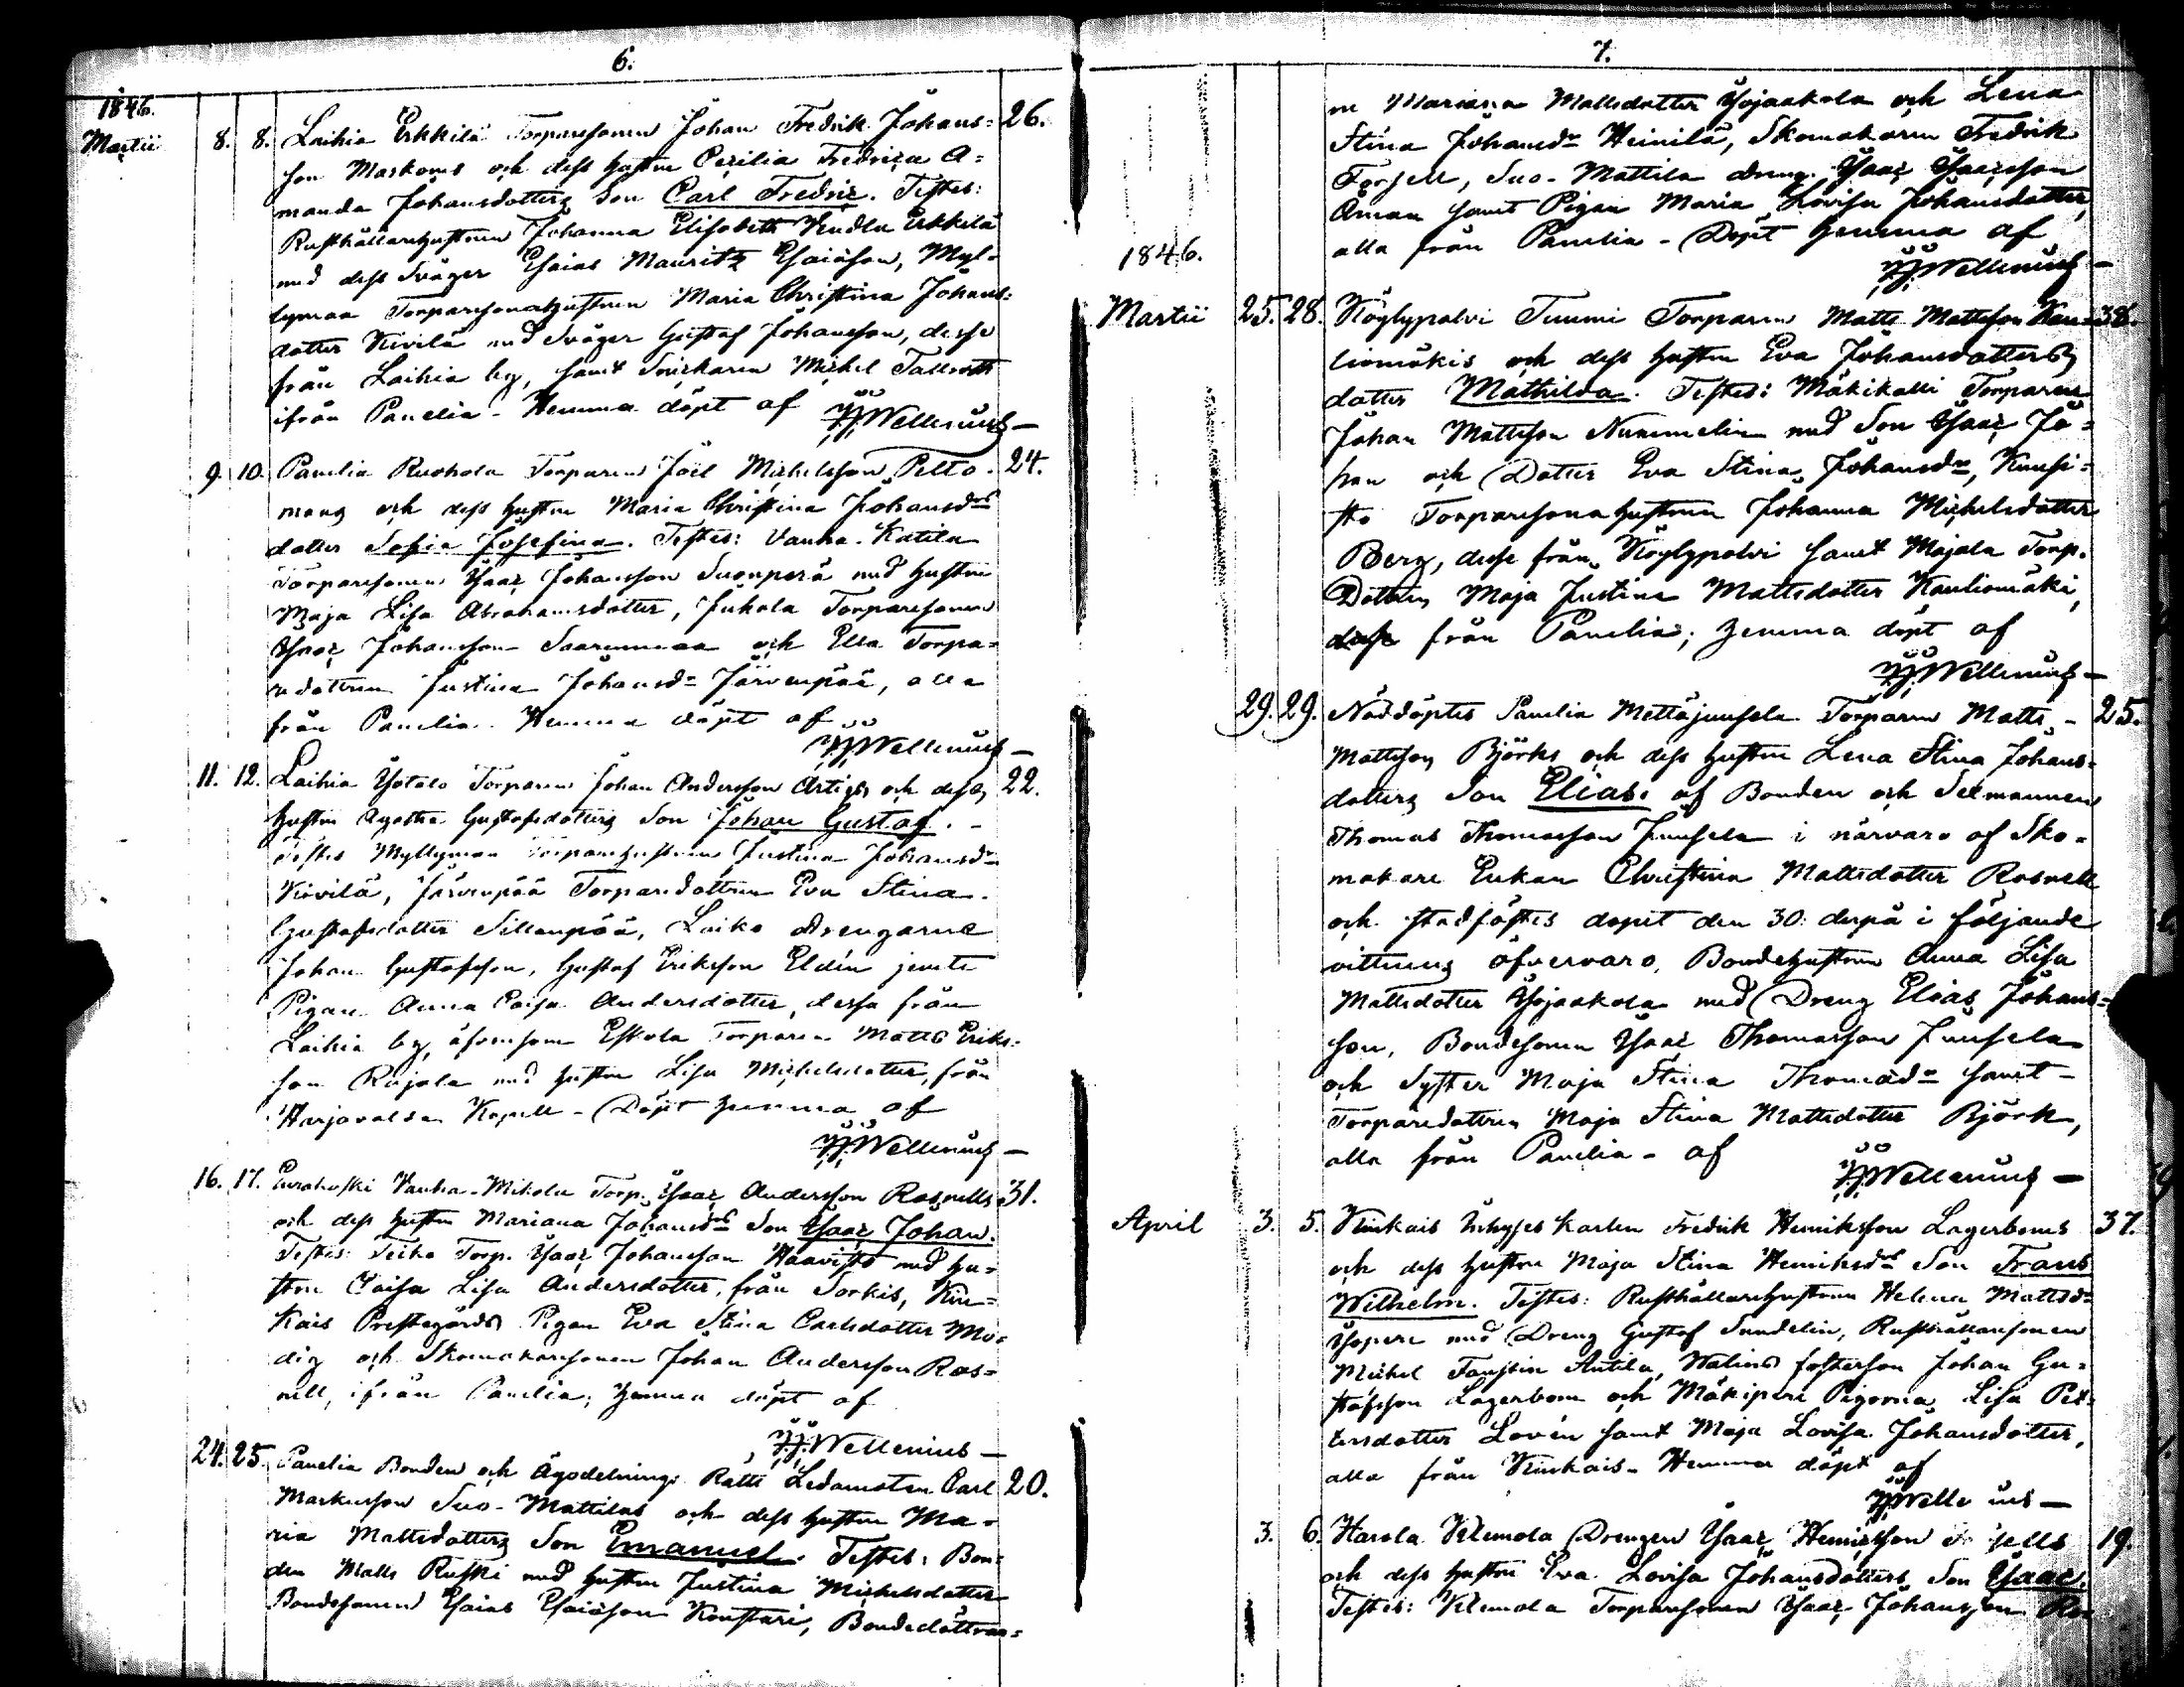 6.
1846.
Martii 8. 8. Laihia Erkkilä Torparesonen Johan Fredrik Johans= 26.
son Maskoms och dess hustru Cecilia Fredrica A=
manda Johansdotters Son Carl Fredric. Testes:
Rusthållarehustrun Johanna Elisabeth Erkkilä
med dess Svåger Esaias Mauritz Esaiason, Myl=
lymaa Torparesonahustrun Maria Christina Johans=
dotter Kivilä med Svåger Gustaf Johansson, desse
från Laihia by, samt Michel Tallroth
ifrån Panelia - Hemma döpt af JJWellenius —
9. 10. Panelia Ruohola Torparen Joel Michelsson Pelto= 24.
mans och dess hustru Maria Christina Johansdrs
dotter Sofia Josefina. Testes: Vanha-Katila
Torparesonen Isaac Johansson Suonperä med hustru
Maja Lisa Abrahamsdotter, Juhola Torparesonen
Isaac Johansson Saarenmaa och Ella Torpa=
redottren Justina Johansdr Järvenpää, alla
från Panelia. Hemma döpt af
JJWellenius —
11. 12. Laihia Torparen Johan Andersson och dess 22.
hustru Agatha Gustafsdotters Son Johan Gustaf. -
Testes Myllymaa Torparehustrun Justina Johansdr
Kivilä, Järvenpää Torparedottren Eva Stina
Gustafsdotter Sillanpää, Laiko drengarne
Johan Gustafsson, Gustaf Eriksson Eldin jemte
Pigan Anna Caisa Andersdotter, dessa från
Laihia by, äfvensom Eskola Torparen Matts Eriks=
son Rajala med hustru Lisa Michelsdotter, från
Harjavalda Kapell - Döpt hemma af
JJWellenius —
16. 17. Eurakoski Vanha-Mikola Torp. Isaac Andersson Rosnells 31.
och dess hustru Mariana Johansdrs Son Isaac Johan.
Testes: Torp. Isaac Johansson Haavisto med hu=
stru Caisa Lisa Andersdotter, från Sorkis, Kiu=
kais Prestegårds Pigan Eva Stina Carlsdotter Mo=
dig och Skomakaresonen Johan Andersson Ros=
nell, ifrån Panelia; hemma döpt af
JJWellenius —
24. 25. Panelia Bonden och Ägodelnings Rätts Ledamoten Carl 20.
Markusson Suo-Mattilas och dess hustru Ma=
ria Mattsdotters Son Emanuel. Testes: Bon=
den Matts Ruski med hustru Justina Michelsdotter
Bondesonen Esaias Esaiason Konstari, Bondedöttrar=
7.
ne Mariana Mattsdotter Yojaakola och Lena
Stina Johansdr Heinilä, Skomakaren Fredrik
Forsell, Suo-Mattila dreng Isaac Isacsson
Åman samt Pigan Maria Lovisa Johansdotter,
alla från Panelia - Döpt hemma af
JJWellenius —
1846.
Martii 25. 28. Köylypolvi Tuomi Torparen Matts Mattsson Kau= 38.
liomäkis och dess hustru Eva Johansdotters
dotter Mathilda. Testes: Mäkikalli Torparen
Johan Mattsson Nummelin med Son Isaac Jo=
han och Dotter Eva Stina Johansdr, Kuusi=
sto Torparesonahustrun Johanna Michelsdotter
Berg, desse från Köylypolvi samt Majala Torp.
Dottren Maja Justina Mattsdotter Kauliomäki,
från Panelia; hemma döpt af
JJWellenius —
29. 29. Nöddöptes Panelia Mettäjunsela Torparen Matts - 25.
Mattsson Björks och dess hustru Lena Stina Johans=
dotters Son Elias: af Bonden och Sexmannen
Thomas Thomasson Junsela i närvaro af Sko=
makare Enkan Christina Mattsdotter Rosnell
och stadfästes dopet den 30: derpå i följande
vittnens öfvervaro, Bondehustrun Anna Lisa
Mattsdotter Yojaakola med Dreng Elias Johans=
son, Bondesonen Isaac Thomasson Junsela
och Syster Maja Stina Thomasdr samt -
Torparedottren Maja Stina Mattsdotter Björk,
alla från Panelia - af
JJWellenius —
April 3. 5. Kiukais Inhyses Karlen Fredrik Henriksson Lagerboms 37.
och dess hustru Maja Stina Henriksdrs Son Frans
Wilhelm. Testes: Rusthållarehustrun Helena Mattsdr
Yopere med Dreng Gustaf Sundelin, Rusthållaresonen
Michel Antila, Walins fosterson Johan Gu=
stafsson Lagerbom och Mäkiperi Pigorna Lisa Pet=
tersdotter Lovén samt Maja Lovisa Johansdotter,
alla från Kiukais - Hemma döpt af
JJWellenius —
3. 6. Harola Klemola Drengen Isaac Henricsson 19.
och dess hustru Eva Lovisa Johansdotters Son Isaac.
Testes: Klemola Torparesonen Isaac Johansson